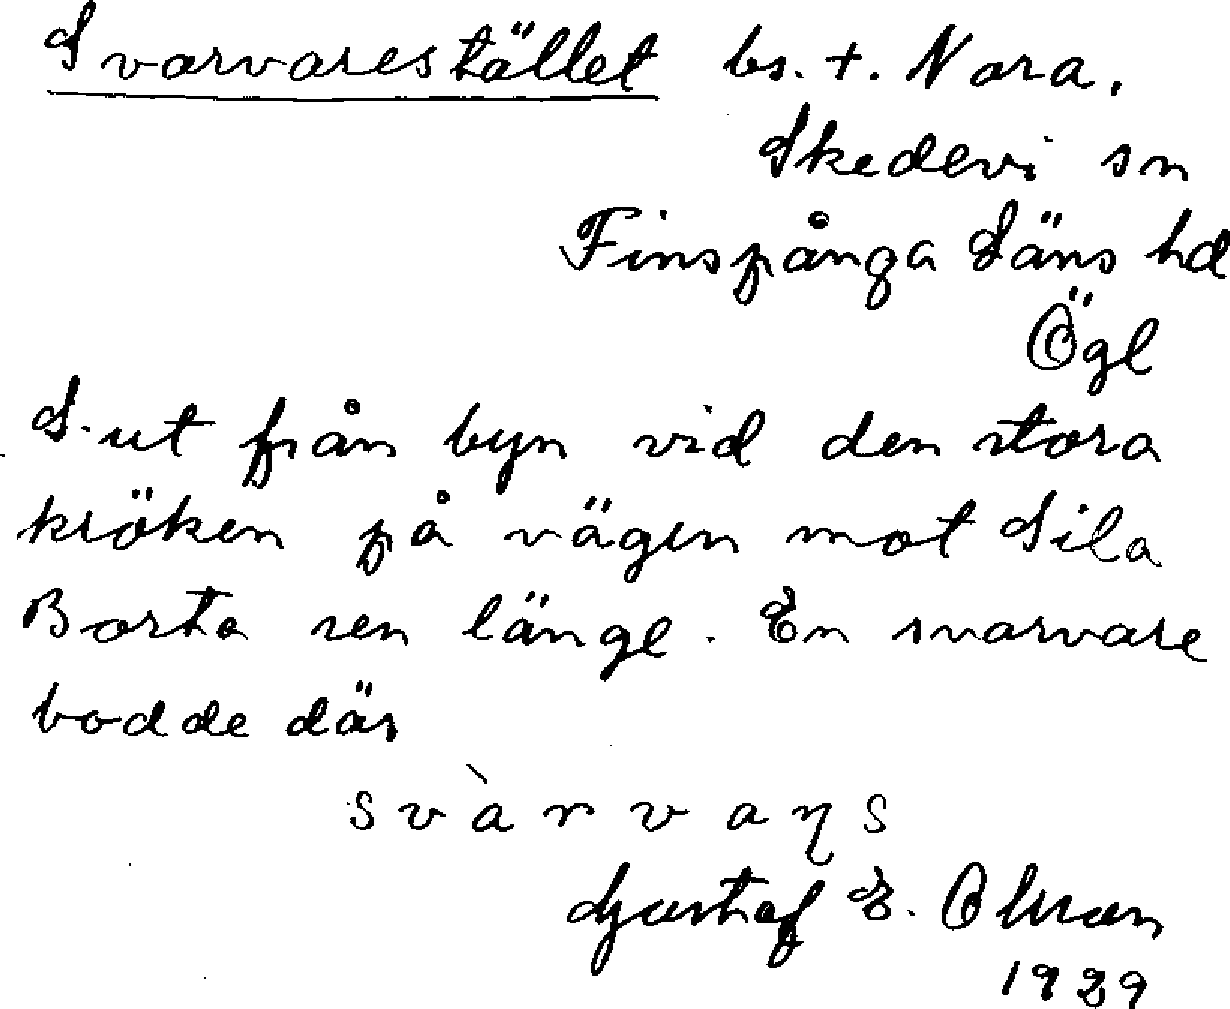 Svarvarestället bs. t. Nora.
Skedevi sn
Finspånga Läns hd
Ögl
S. ut från byn vid den stora
kröken på vägen mot Sila
Borta sen länge. En svarvare
bodde där
svàrvaɳs
Gustaf E. Olsson
1929